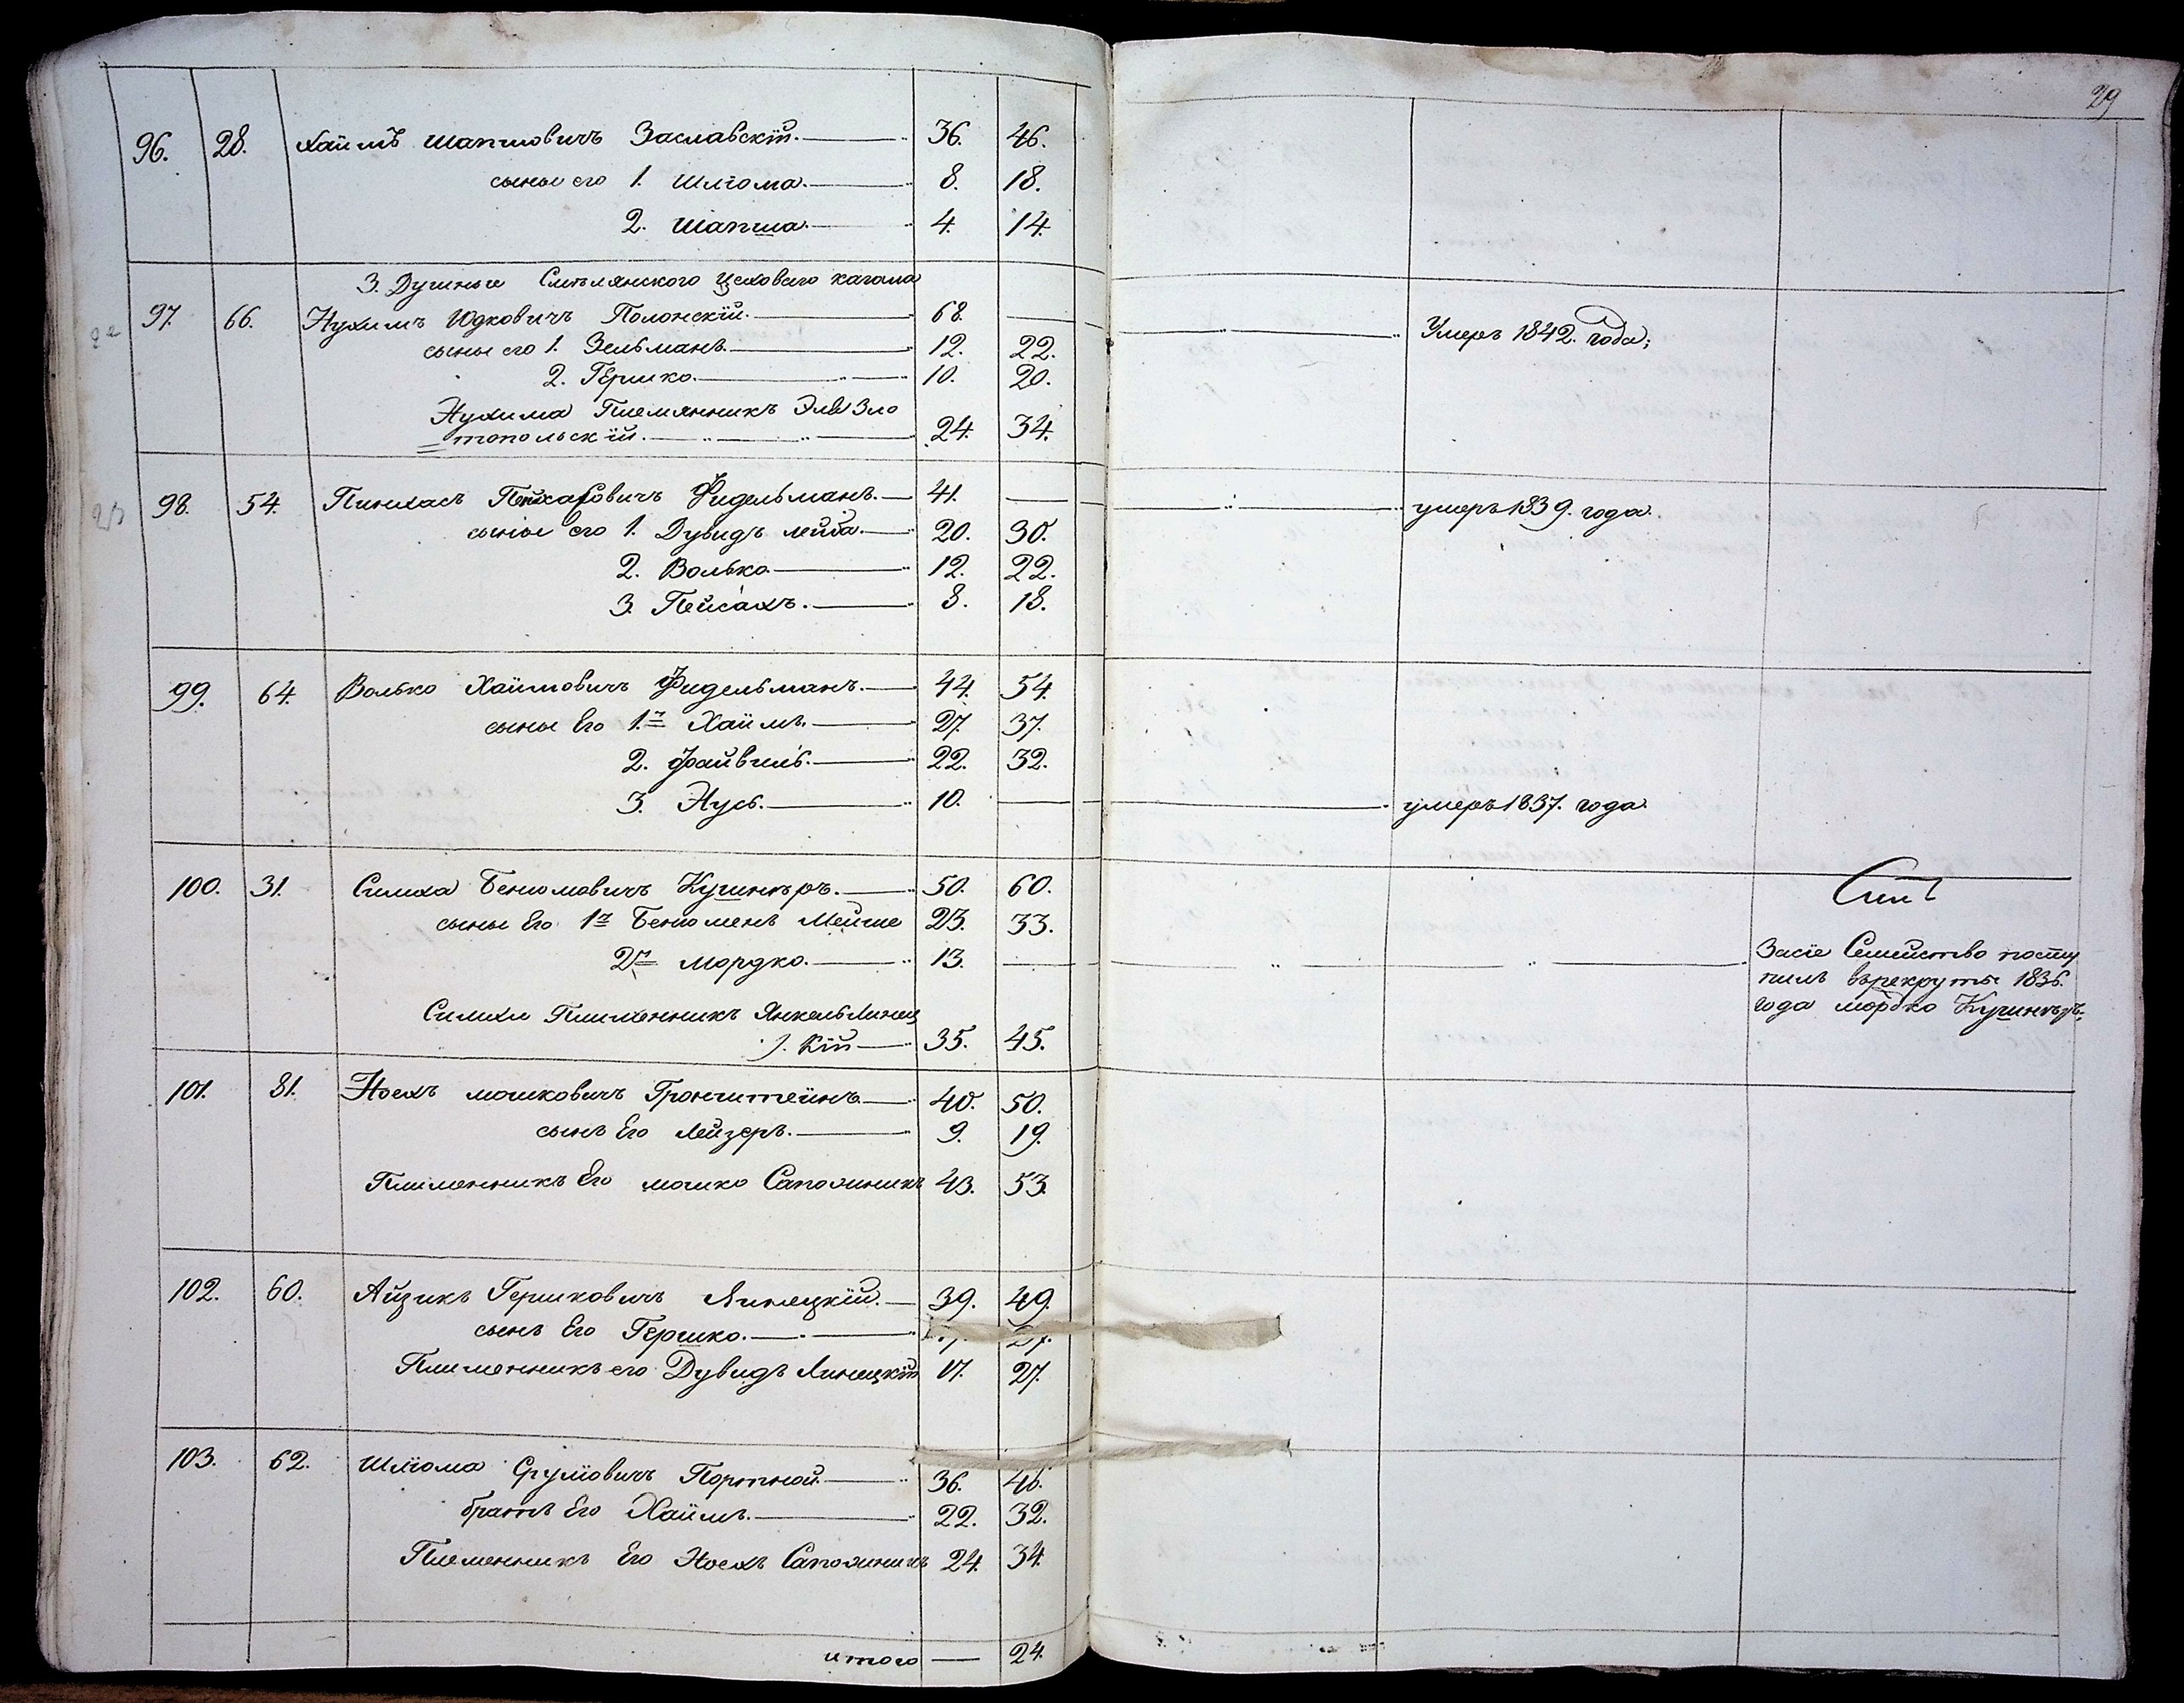 29
96. 28. Хаимъ Шапшовичъ Заславскій. 36. 46.
сыны его 1. Шліома. 8. 18.
2. Шапша. 4. 14.
3. Душные Смѣлянского Цеховаго кагала
97. 66. Нухимъ Юдковичъ Полонскій. 68. — Умеръ 1842. года;
сыны его 1. Зельманъ. 12. 22.
2. Гершко. 10. 20.
Нухима Племянникъ Эля Зло
=топольскій. 24. 34.
98. 54. Пинхасъ Фидельманъ. 41. — умеръ 1839. года.
сыны его 1. Дувидъ Лейба. 20. 30.
2. Волько 12. 22.
3. Пейсахъ. 8. 18.
99. 64. Волько Хаимовичъ Фидельманъ. 44. 54.
сыны Его 1.й Хаимъ. 27. 37.
2. Файвиль. 22. 32.
3. Нусь. 10. — умеръ 1837. года.
100. 31. Симха Беніомовичъ Кушнѣръ. 50. 60.
сыны Его 1й Беніоменъ Мейше 23. 33.
2й Мордко. 13. — Засіе Семейство посту
пилъ врекруты 1836.
года Мордко Кушнѣръ;
Симхи Плименникъ Янкель Линец
кій 35. 45.
101. 81. Носехъ Мошковичъ Гронштейнъ 40. 50.
сынъ Его Лейзеръ. 9. 19.
Плименникъ Его Мошко Сапожникъ 43. 53.
102. 60. Айзикъ Гершковичъ Линецкій. 39. 49.
сынъ Его Гершко.
Плименникъ его Дувидъ Линецкій 17. 27.
103. 62. Шліома Сруліовичъ Портной 36. 46.
братъ Его Хаимъ. 22. 32.
Племенникъ Его Носехъ Сапожникъ 24. 34.
итого — 24.